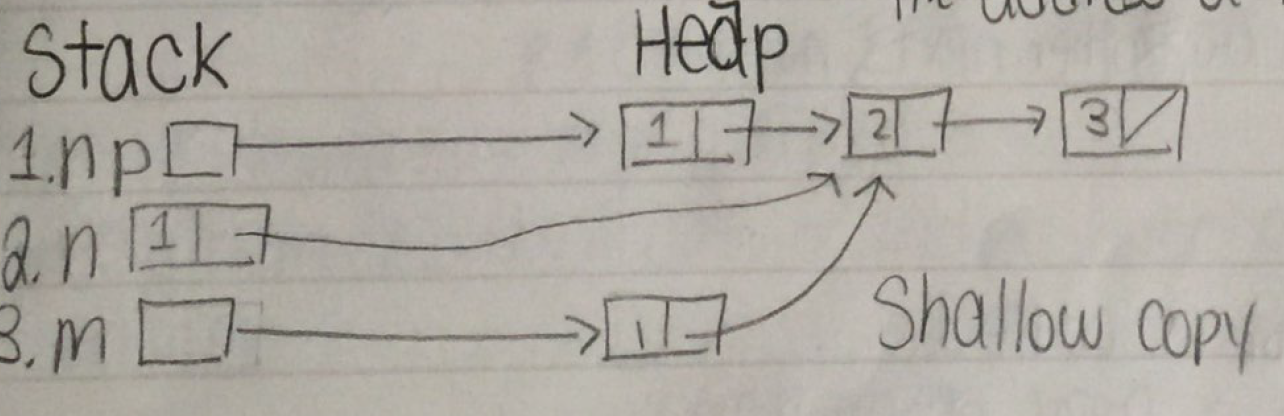 Stack Heap
1. np 1 2 3
2. n 1
3. m 1
Shallow copy